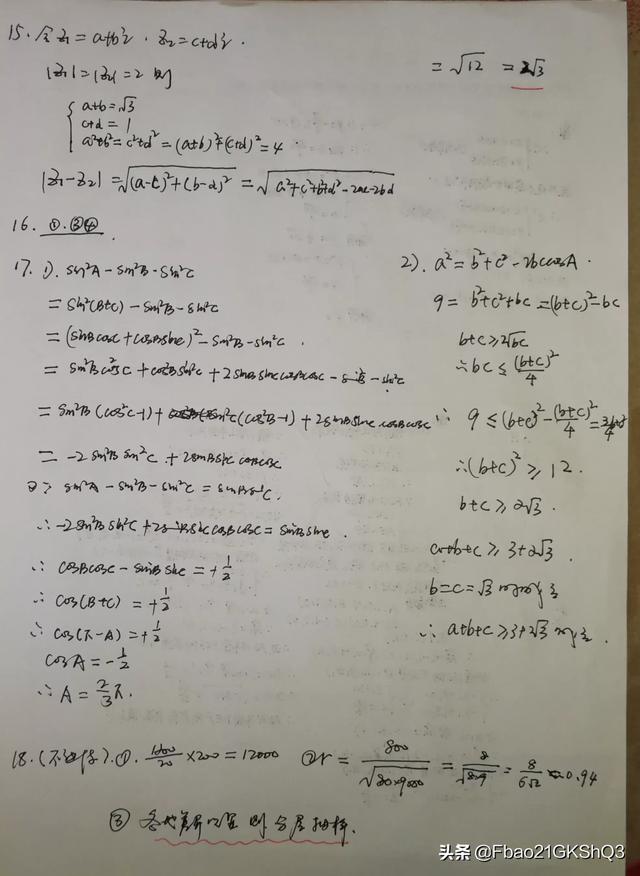 15. 令z₁=a+bi, z₂=c+di.
|z₁|=|z₂|=2 则
a+b=√3
c+d=1
a²+b²=c²+d²=(a+b)²+(c+d)²=4
|z₁-z₂|=√((a-c)²+(b-d)²)=√(a²+c²+b²+d²-2ac-2bd)
=√12=2√3
16. ①.③④
17. 1). sin²A-sin²B-sin²C
=sin²(B+C)-sin²B-sin²C
=(sinBcosC+cosBsinC)²-sin²B-sin²C.
=sin²Bcos²C+cos²Bsin²C+2sinBsinCcosBcosC-sin²B-sin²C
=sin²B(cos²C-1)+sin²C(cos²B-1)+2sinBsinCcosBcosC
=-2sin²Bsin²C+2sinBsinCcosBcosC
∵sin²A-sin²B-sin²C=sinBsinC.
∴-2sin²Bsin²C+2sinBsinCcosBcosC=sinBsinC.
∴cosBcosC-sinBsinC=+1/2
∴cos(B+C)=+1/2
∴cos(π-A)=+1/2
cosA=-1/2
∴A=2/3π.
2). a²=b²+c²-2bccosA.
9=b²+c²+bc=(b+c)²-bc
b+c≥2√bc
∴bc≤(b+c)²/4
∴9≤(b+c)²-(b+c)²/4=
∴(b+c)²≥12.
b+c≥2√3.
a+b+c≥3+2√3.
b=c=√3
∴a+b+c≥3+2√3
18. ①. /20×200=12000 ②r=800/√(80×9000)=8/√(8×9)=8/6√2≈0.94
③ 各地差异 则分层抽样.
头条 @Fbao21GKShQ3